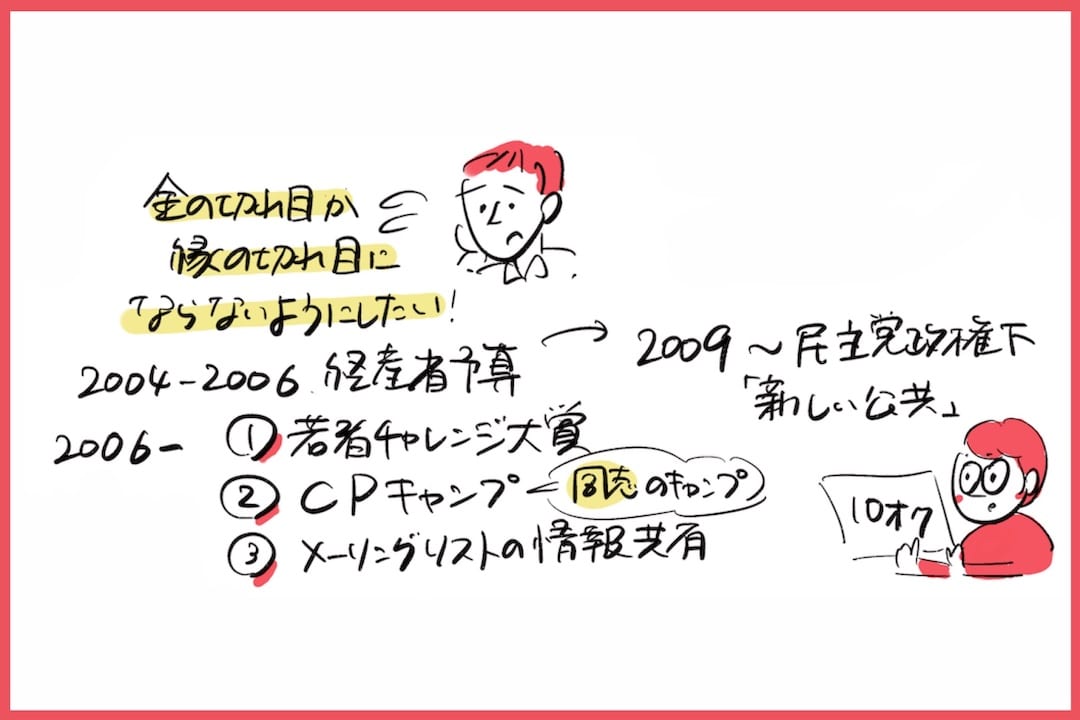 金の切れ目が
縁の切れ目に
ならないようにしたい!
2004-2006 経産省予算
→ 2009～民主党政権下
「新しい公共」
2006- ① 若者チャレンジ大賞
② CPキャンプ
同志のキャンプ
③ メーリングリストの情報共有
10オク